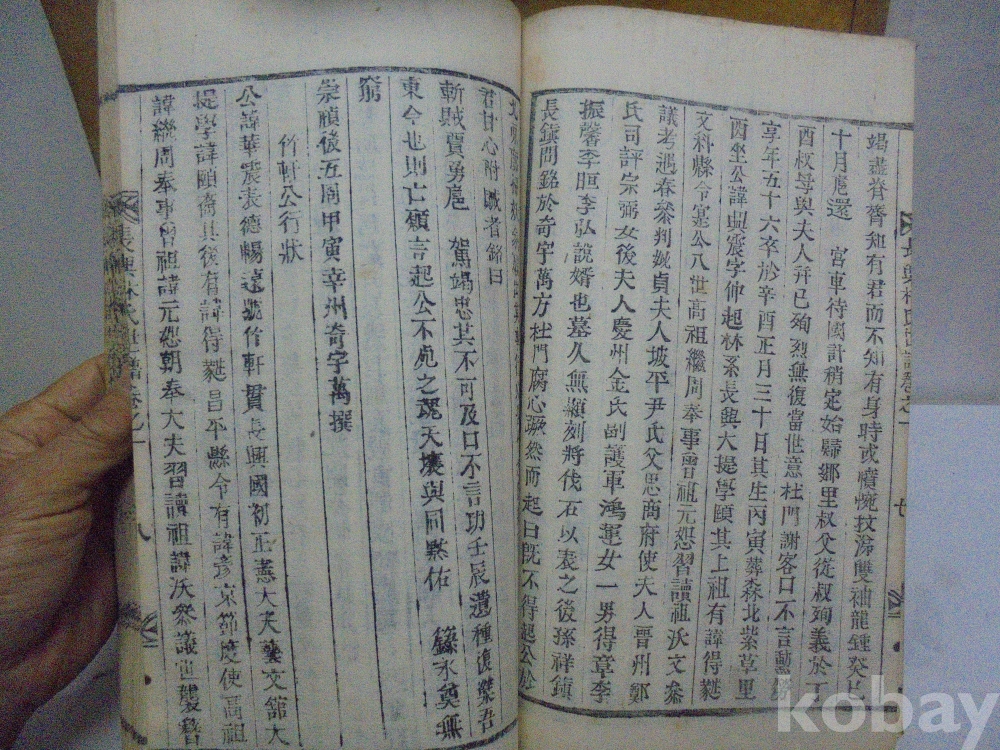 竭盡膂膂知有君而不知有身時或憤惋抆涕雙袖龍鍾癸巳
十月扈還 宮車待國計稍定始歸鄉里叔父從叔殉義於丁
酉叔母與夫人幷已殉烈無復當世意杜門謝客口不言勳
享年五十六卒於辛酉正月三十日其生丙寅葬森北紫草里
酉坐公諱盟震字仲起林系長興大提學頤其上祖有諱得㲯
文科縣令寔公八世高祖繼周奉事曾祖元恕習讀祖沃文叅
議考遇春叅判娩貞夫人坡平尹氏父思商府使夫人晋州鄭
氏司評宗弼女後夫人慶州金氏副護軍鴻運女一男得章李
振馨李晅李弘說婿也墓久無顯刻將伐石以表之後孫祥鎭
長鎭問銘於奇宇萬方杜門腐心蹶然而起曰旣不得起公於
君甘心附賊者銘曰
斬賊賈勇扈 駕竭忠其不可及口不言功壬辰遺種復槩吾
東今也則亡願言起公不死之魂天壤與同黙佑 籙永奠無
窮
崇禎後五周甲寅幸州奇宇萬撰
竹軒公行狀
公諱華震表德暢遠號竹軒貫長興國初正憲大夫藝文舘大
提學諱頤裔其後有諱得㲯昌平縣令有諱彥京節度使高祖
諱繼周奉事曾祖諱元恕朝奉大夫習讀祖諱沃叅議世襲簪
長興林氏世譜卷之一
八
七
kobay